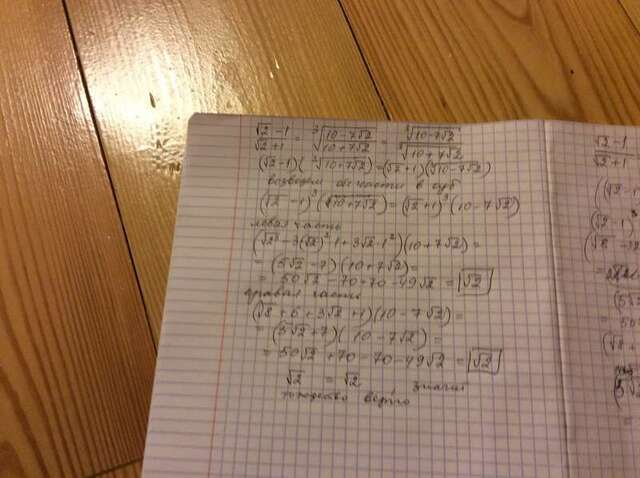 (√2 -1)/(√2 +1) = ∛((10-7√2)/(10+7√2)) = ∛(10-7√2)/∛(10+7√2)
(√2-1)(∛(10+7√2)) = (√2+1)(∛(10-7√2))
возведем обе части в куб
(√2 -1)³(10+7√2) = (√2+1)³(10-7√2)
левая часть
(√2³-3(√2)²·1+3√2·1²)(10+7√2)=
= (5√2-7)(10+7√2)=
= 50√2-70+70-49√2 = √2
правая часть
(√8 + 6 + 3√2 +1)(10-7√2)=
= (5√2+7)(10-7√2)=
= 50√2 +70-70-49√2 = √2
√2 = √2, значит
тождество верно
√2 -1
√2 +1